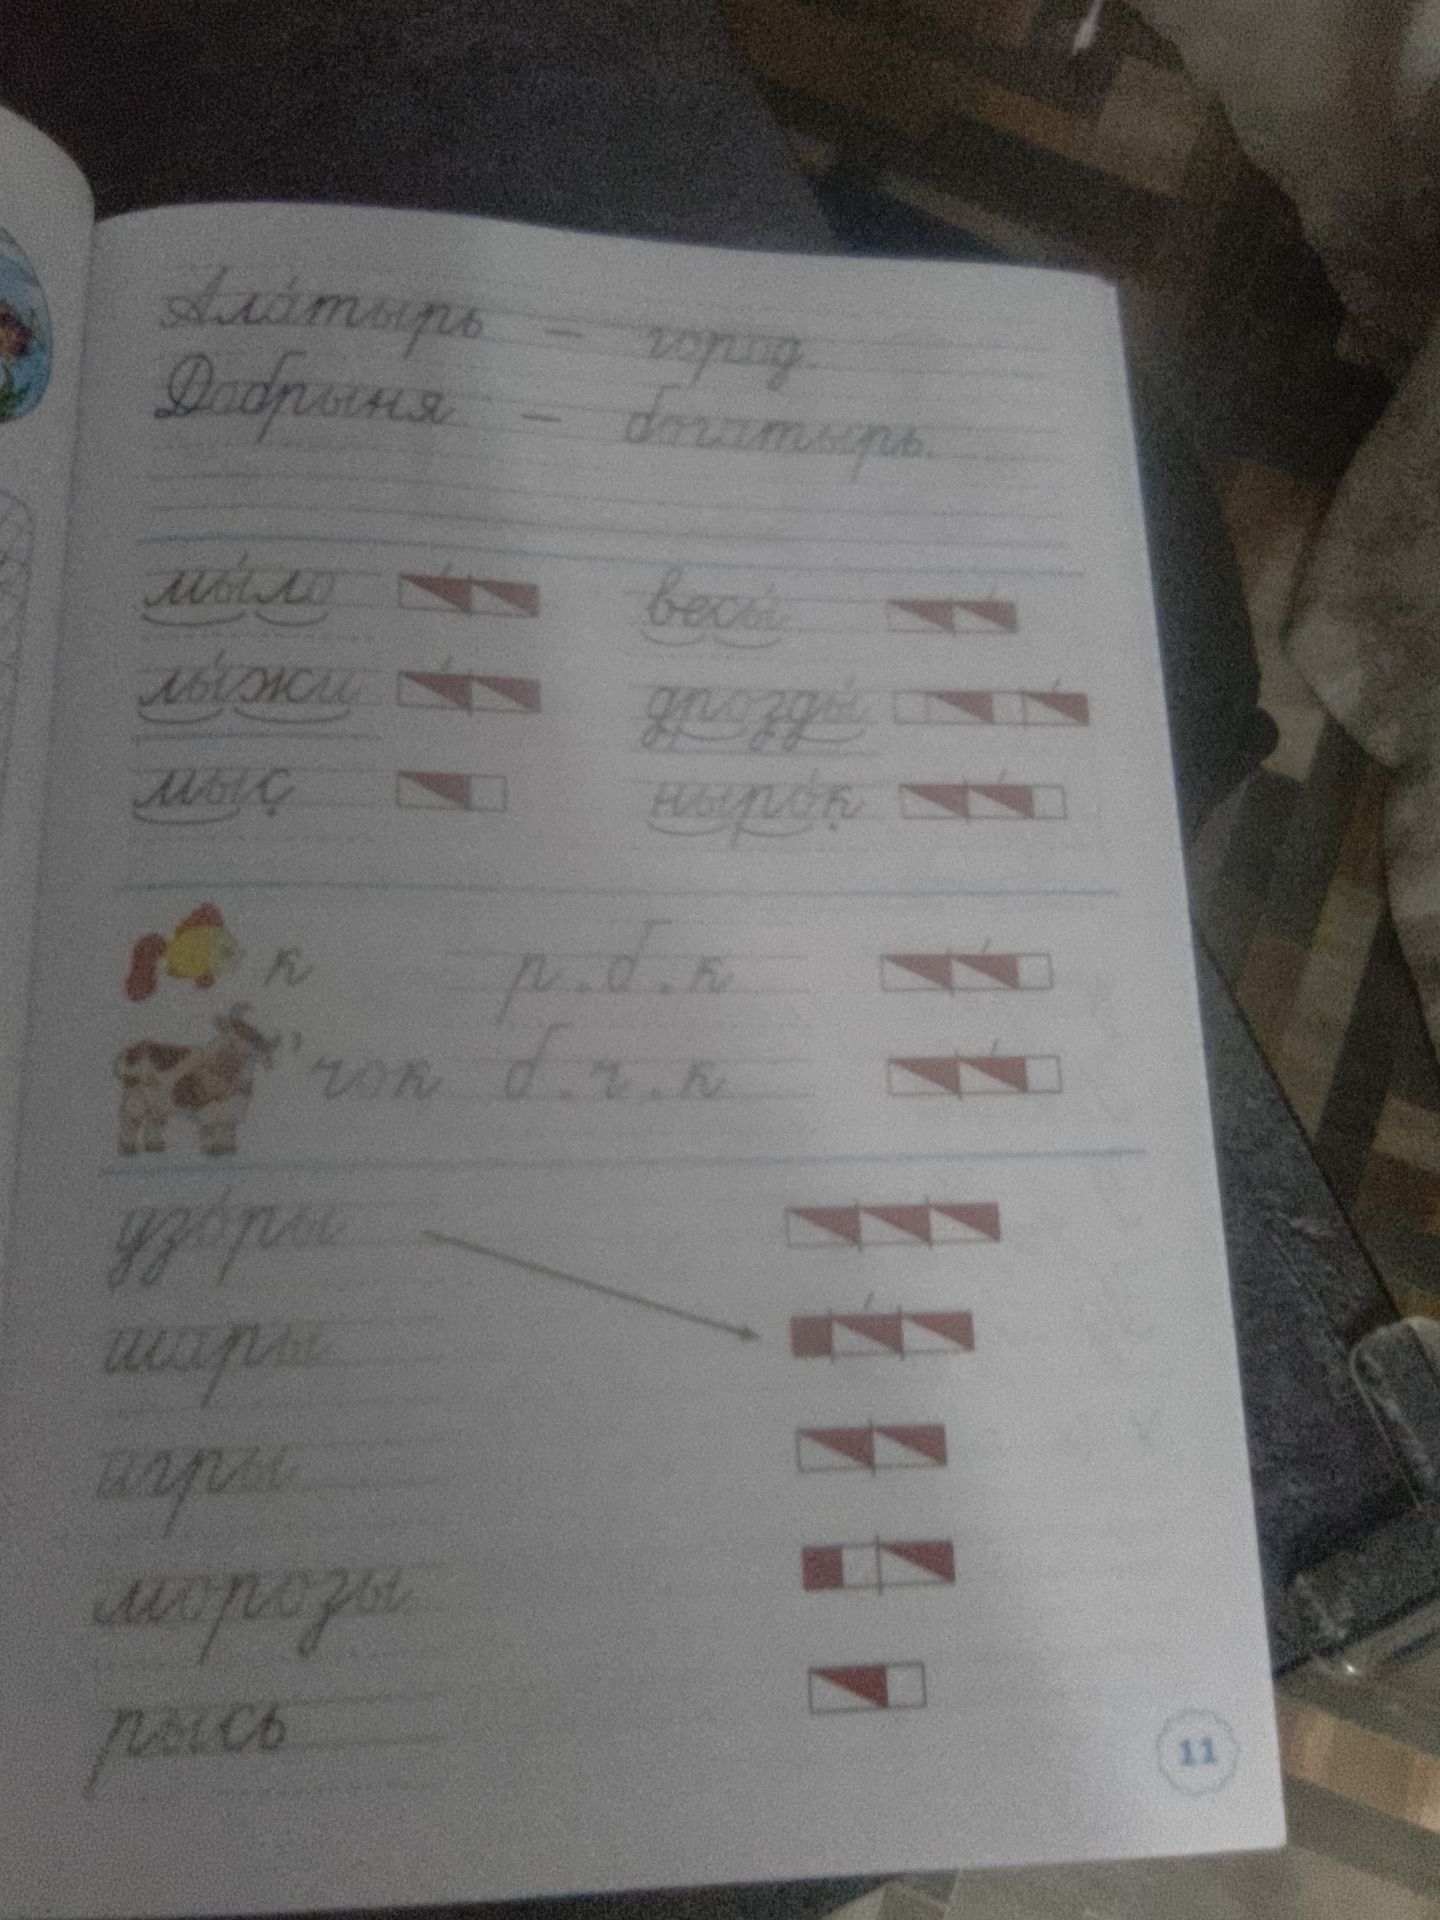 Ала́тырь – город.
Добрыня – богатырь.
мы́ло весы́
лы́жи дрозды́
мыс ныро́к
к р.б.к
' чок б.ч.к
узо́ры
шары
игры
морозы
рысь
11